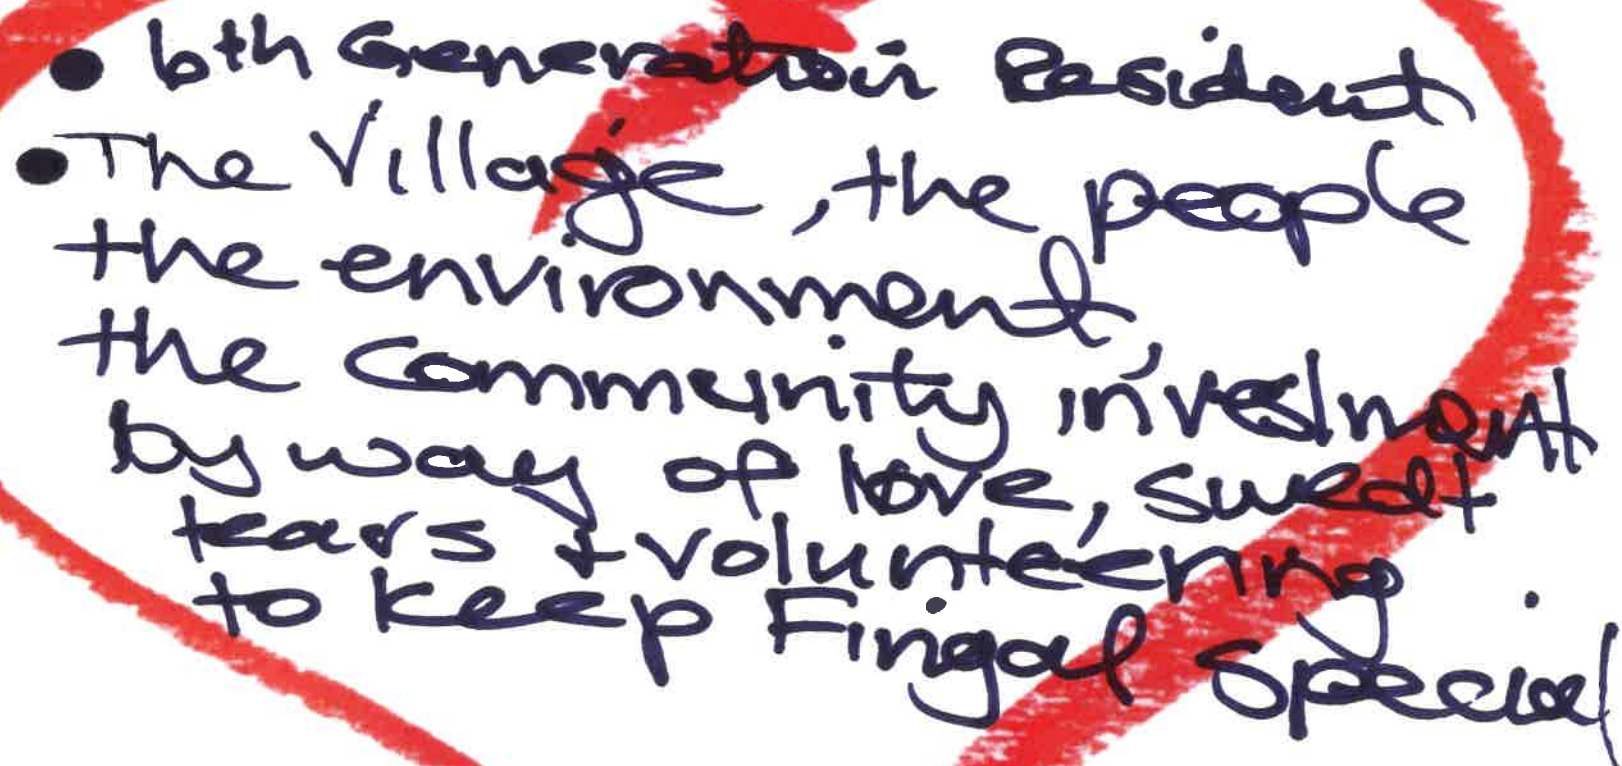 • 6th Generation Resident
• The Village, the people
the environment,
the community investment
by way of love, sweat
tears + volunteering
to keep Fingal special